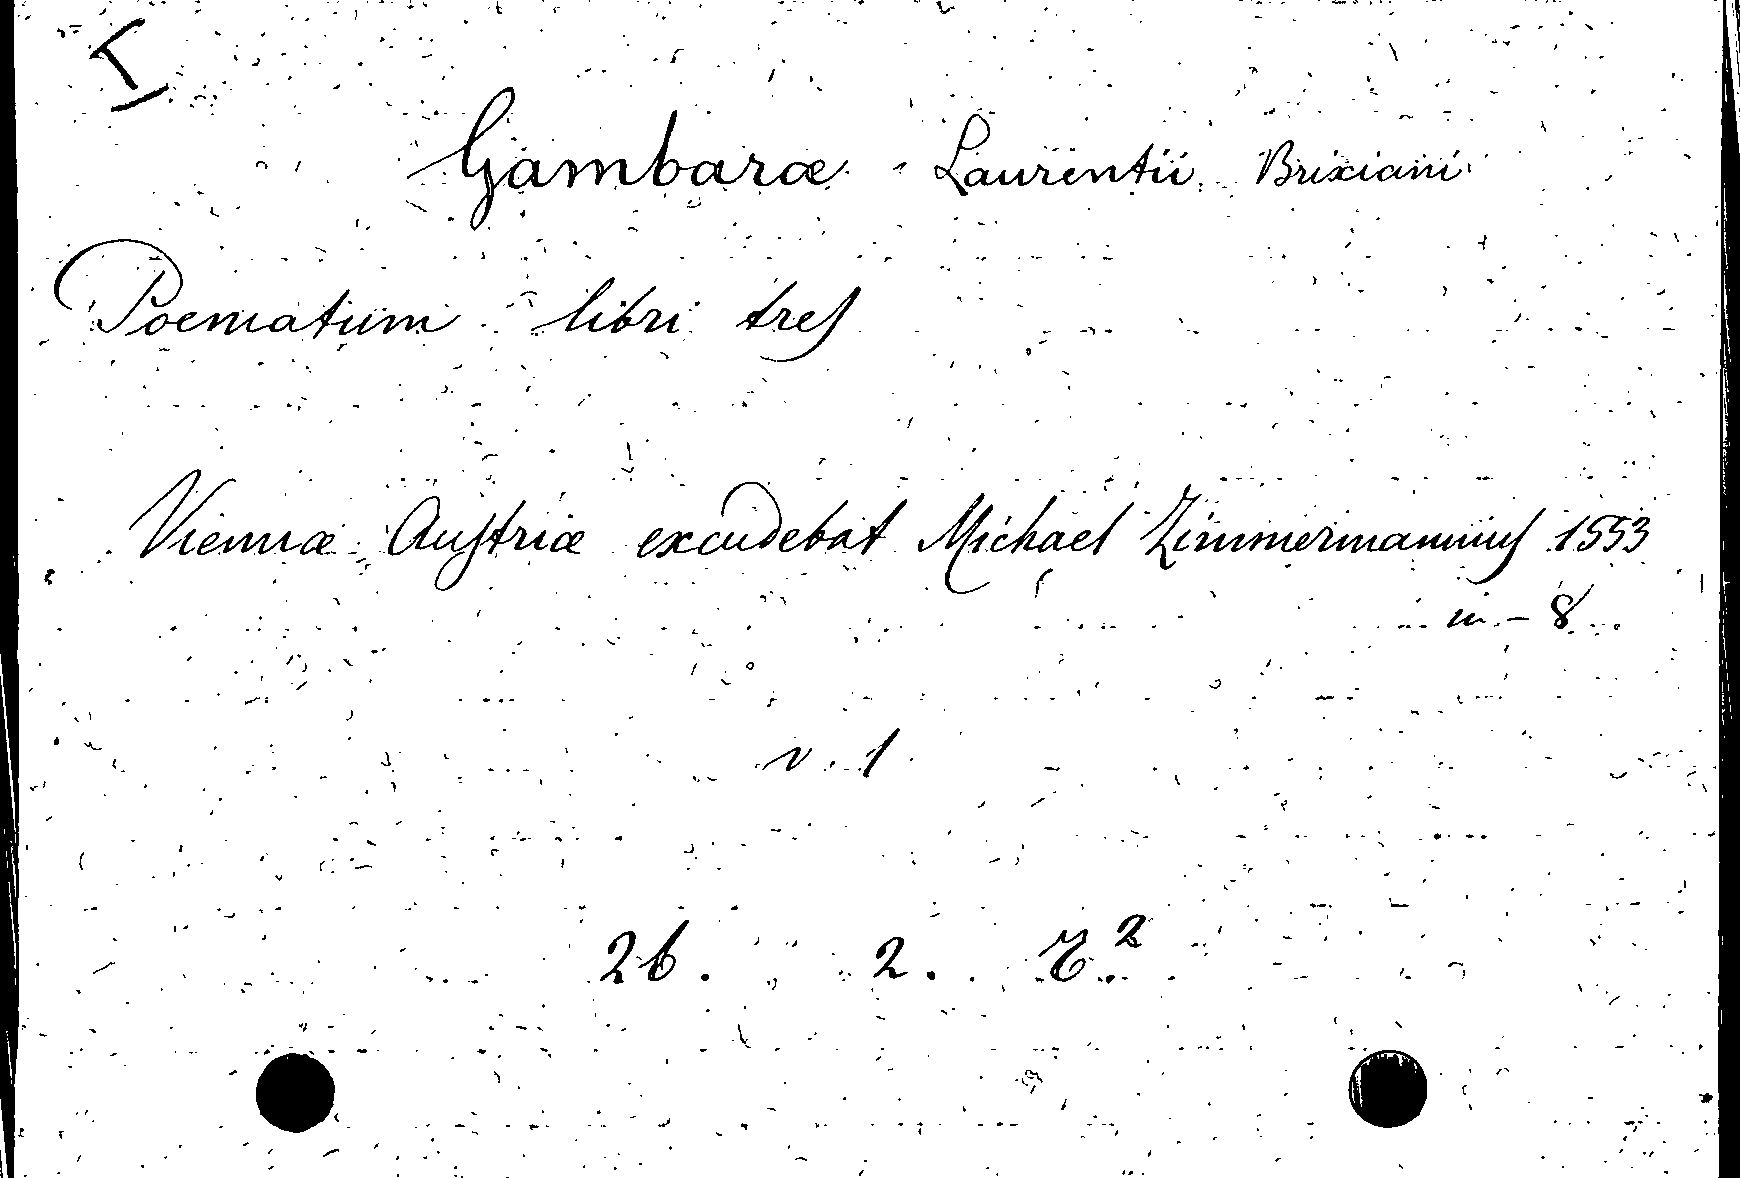 I
Gambaræ Laurentii Brixiani
Poematum libri tres
Viennæ Austriæ excudebat Michael Zimmermannus 1553
in-8
v. 1
26. 2.